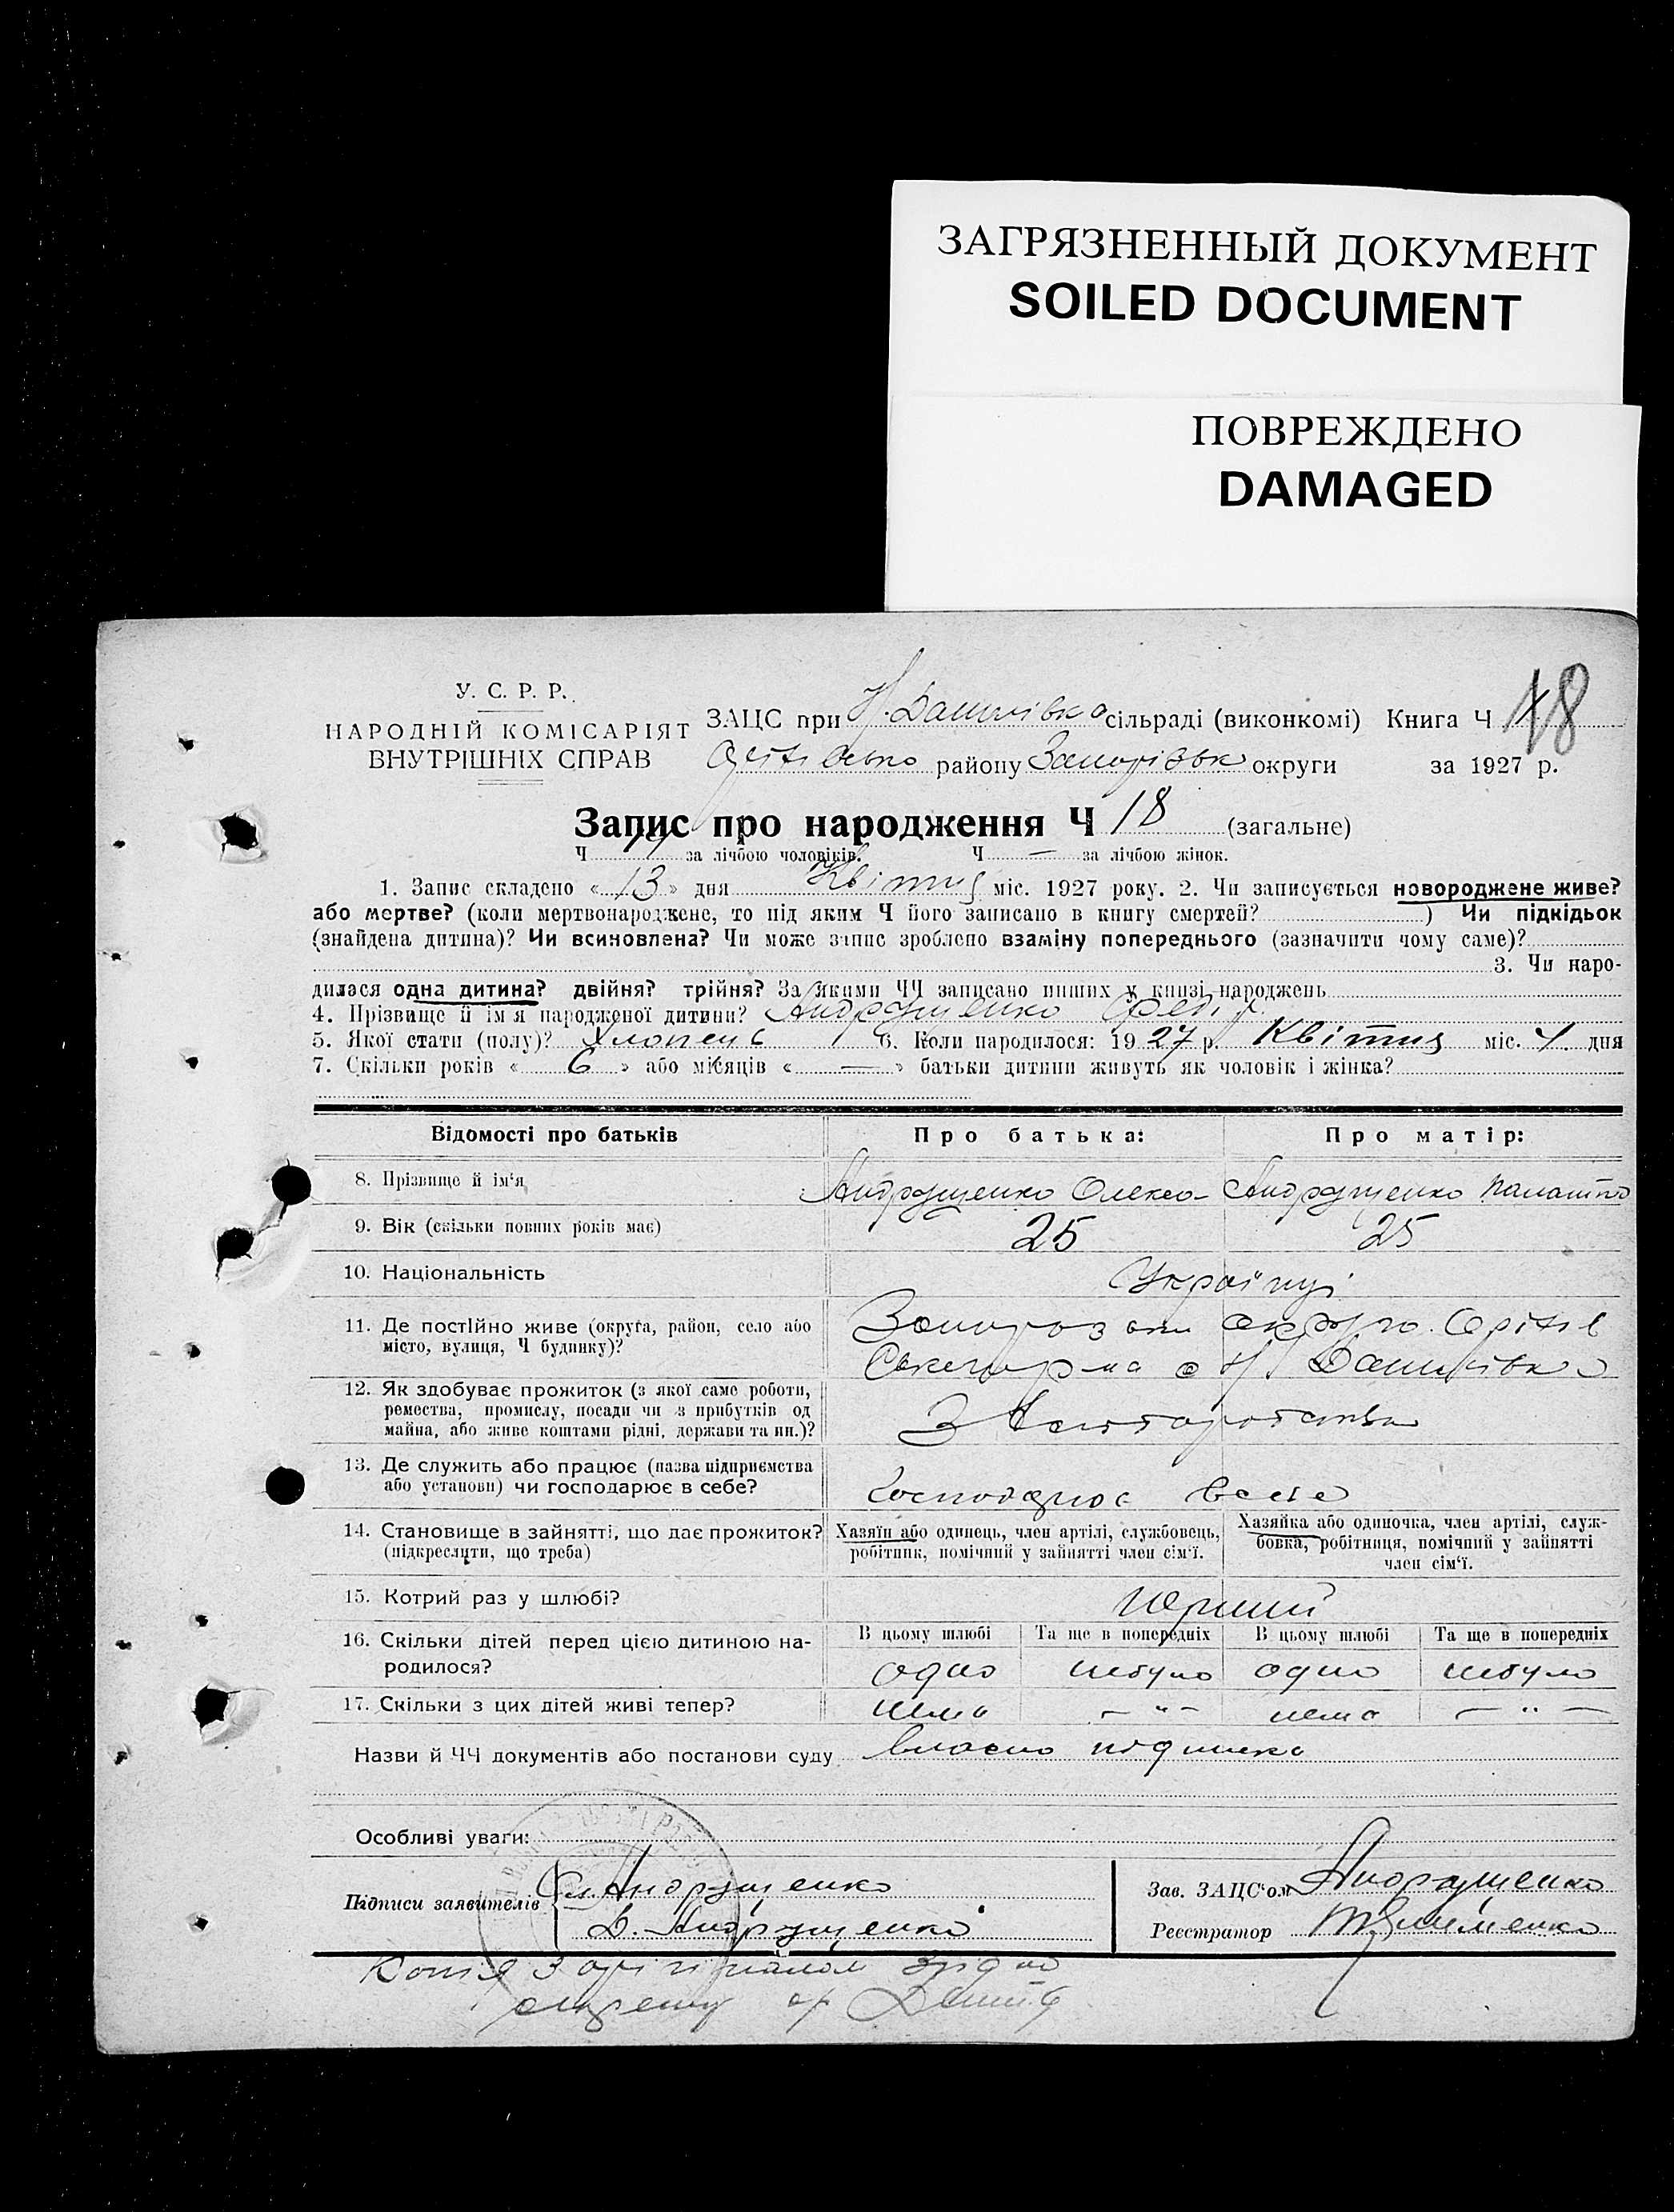 ЗАГРЯЗНЕННЫЙ ДОКУМЕНТ
SOILED DOCUMENT
ПОВРЕЖДЕНО
DAMAGED
У. С. Р. Р.
НАРОДНІЙ КОМІСАРІЯТ
ВНУТРІШНІХ СПРАВ
ЗАЦС при сільраді (виконкомі) Книга Ч 18
району округи за 1927 р.
Запис про народження Ч 18 (загальне)
Ч за лічбою чоловіків. Ч — за лічбою жінок.
1. Запис складено « 13 » дня Квітня міс. 1927 року. 2. Чи записується новороджене живе?
або мертве? (коли мертвонароджене, то під яким Ч його записано в книгу смертей? ) Чи підкідьок
(знайдена дитина)? Чи всиновлена? Чи може запис зроблено взаміну попереднього (зазначити чому саме)?
3. Чи наро-
дилася одна дитина? двійня? трійня? За якими ЧЧ записано инших у книзі народжень
4. Прізвище й ім'я народженої дитини? Андрущенко
5. Якої стати (полу)? Хлопець 6. Коли народилося: 19 27 р. Квітня міс. 4. дня
7. Скільки років « 6 » або місяців « — » батьки дитини живуть як чоловік і жінка?
Відомості про батьків
Про батька:
Про матір:
8. Прізвище й ім'я Андрущенко Олекса Андрущенко
9. Вік (скільки повних років має) 25 25
10. Національність Українці
11. Де постійно живе (округа, район, село або
місто, вулиця, Ч будинку)?
12. Як здобуває прожиток (з якої саме роботи,
ремества, промислу, посади чи з прибутків од
майна, або живе коштами рідні, держави та ин.)?
13. Де служить або працює (назва підприємства
або установи) чи господарює в себе?
14. Становище в зайнятті, що дає прожиток?
(підкреслити, що треба)
Хазяїн або одинець, член артілі, службовець,
робітник, помічний у зайнятті член сім'ї.
Хазяйка або одиночка, член артілі, служ-
бовка, робітниця, помічний у зайнятті
член сім'ї.
15. Котрий раз у шлюбі? Перший
16. Скільки дітей перед цією дитиною на-
родилося?
В цьому шлюбі Та ще в попередніх В цьому шлюбі Та ще в попередніх
одно небуло одно небуло
17. Скільки з цих дітей живі тепер? нема — " — нема — " —
Назви й ЧЧ документів або постанови суду
Особливі уваги:
Підписи заявителів Ол. Андрущенко
Д. Андрущенко
Зав. ЗАЦС'ом Андрущенко
Реєстратор
Копія з оригіналом згідно